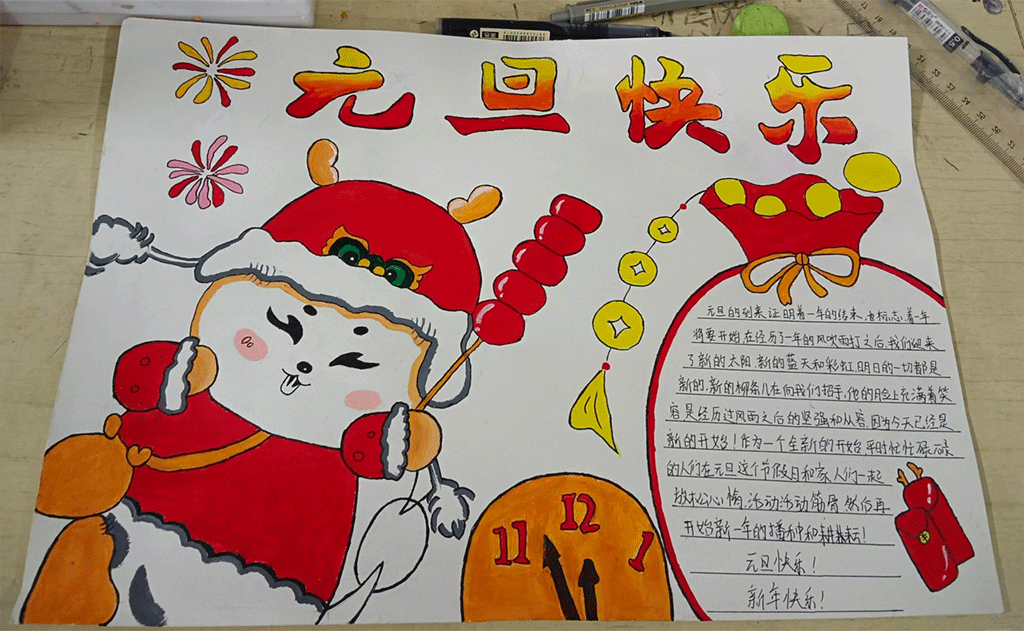 元旦快乐
元旦的到来,证明着一年的结束,也标志着一年
将要开始,在经历了一年的风吹雨打之后,我们迎来
了新的太阳,新的蓝天和彩虹,明日的一切都是
新的,新的柳条儿在向我们招手,他的脸上充满着笑
容是经历过风雨之后的坚强和从容,因为今天已经是
新的开始!作为一个全新的开始,平时忙忙碌碌
的人们在元旦这个节假日和家人们一起
放松心情,活动活动筋骨,然后再
开始新一年的播种和耕耘!
元旦快乐!
新年快乐!
11 12 1